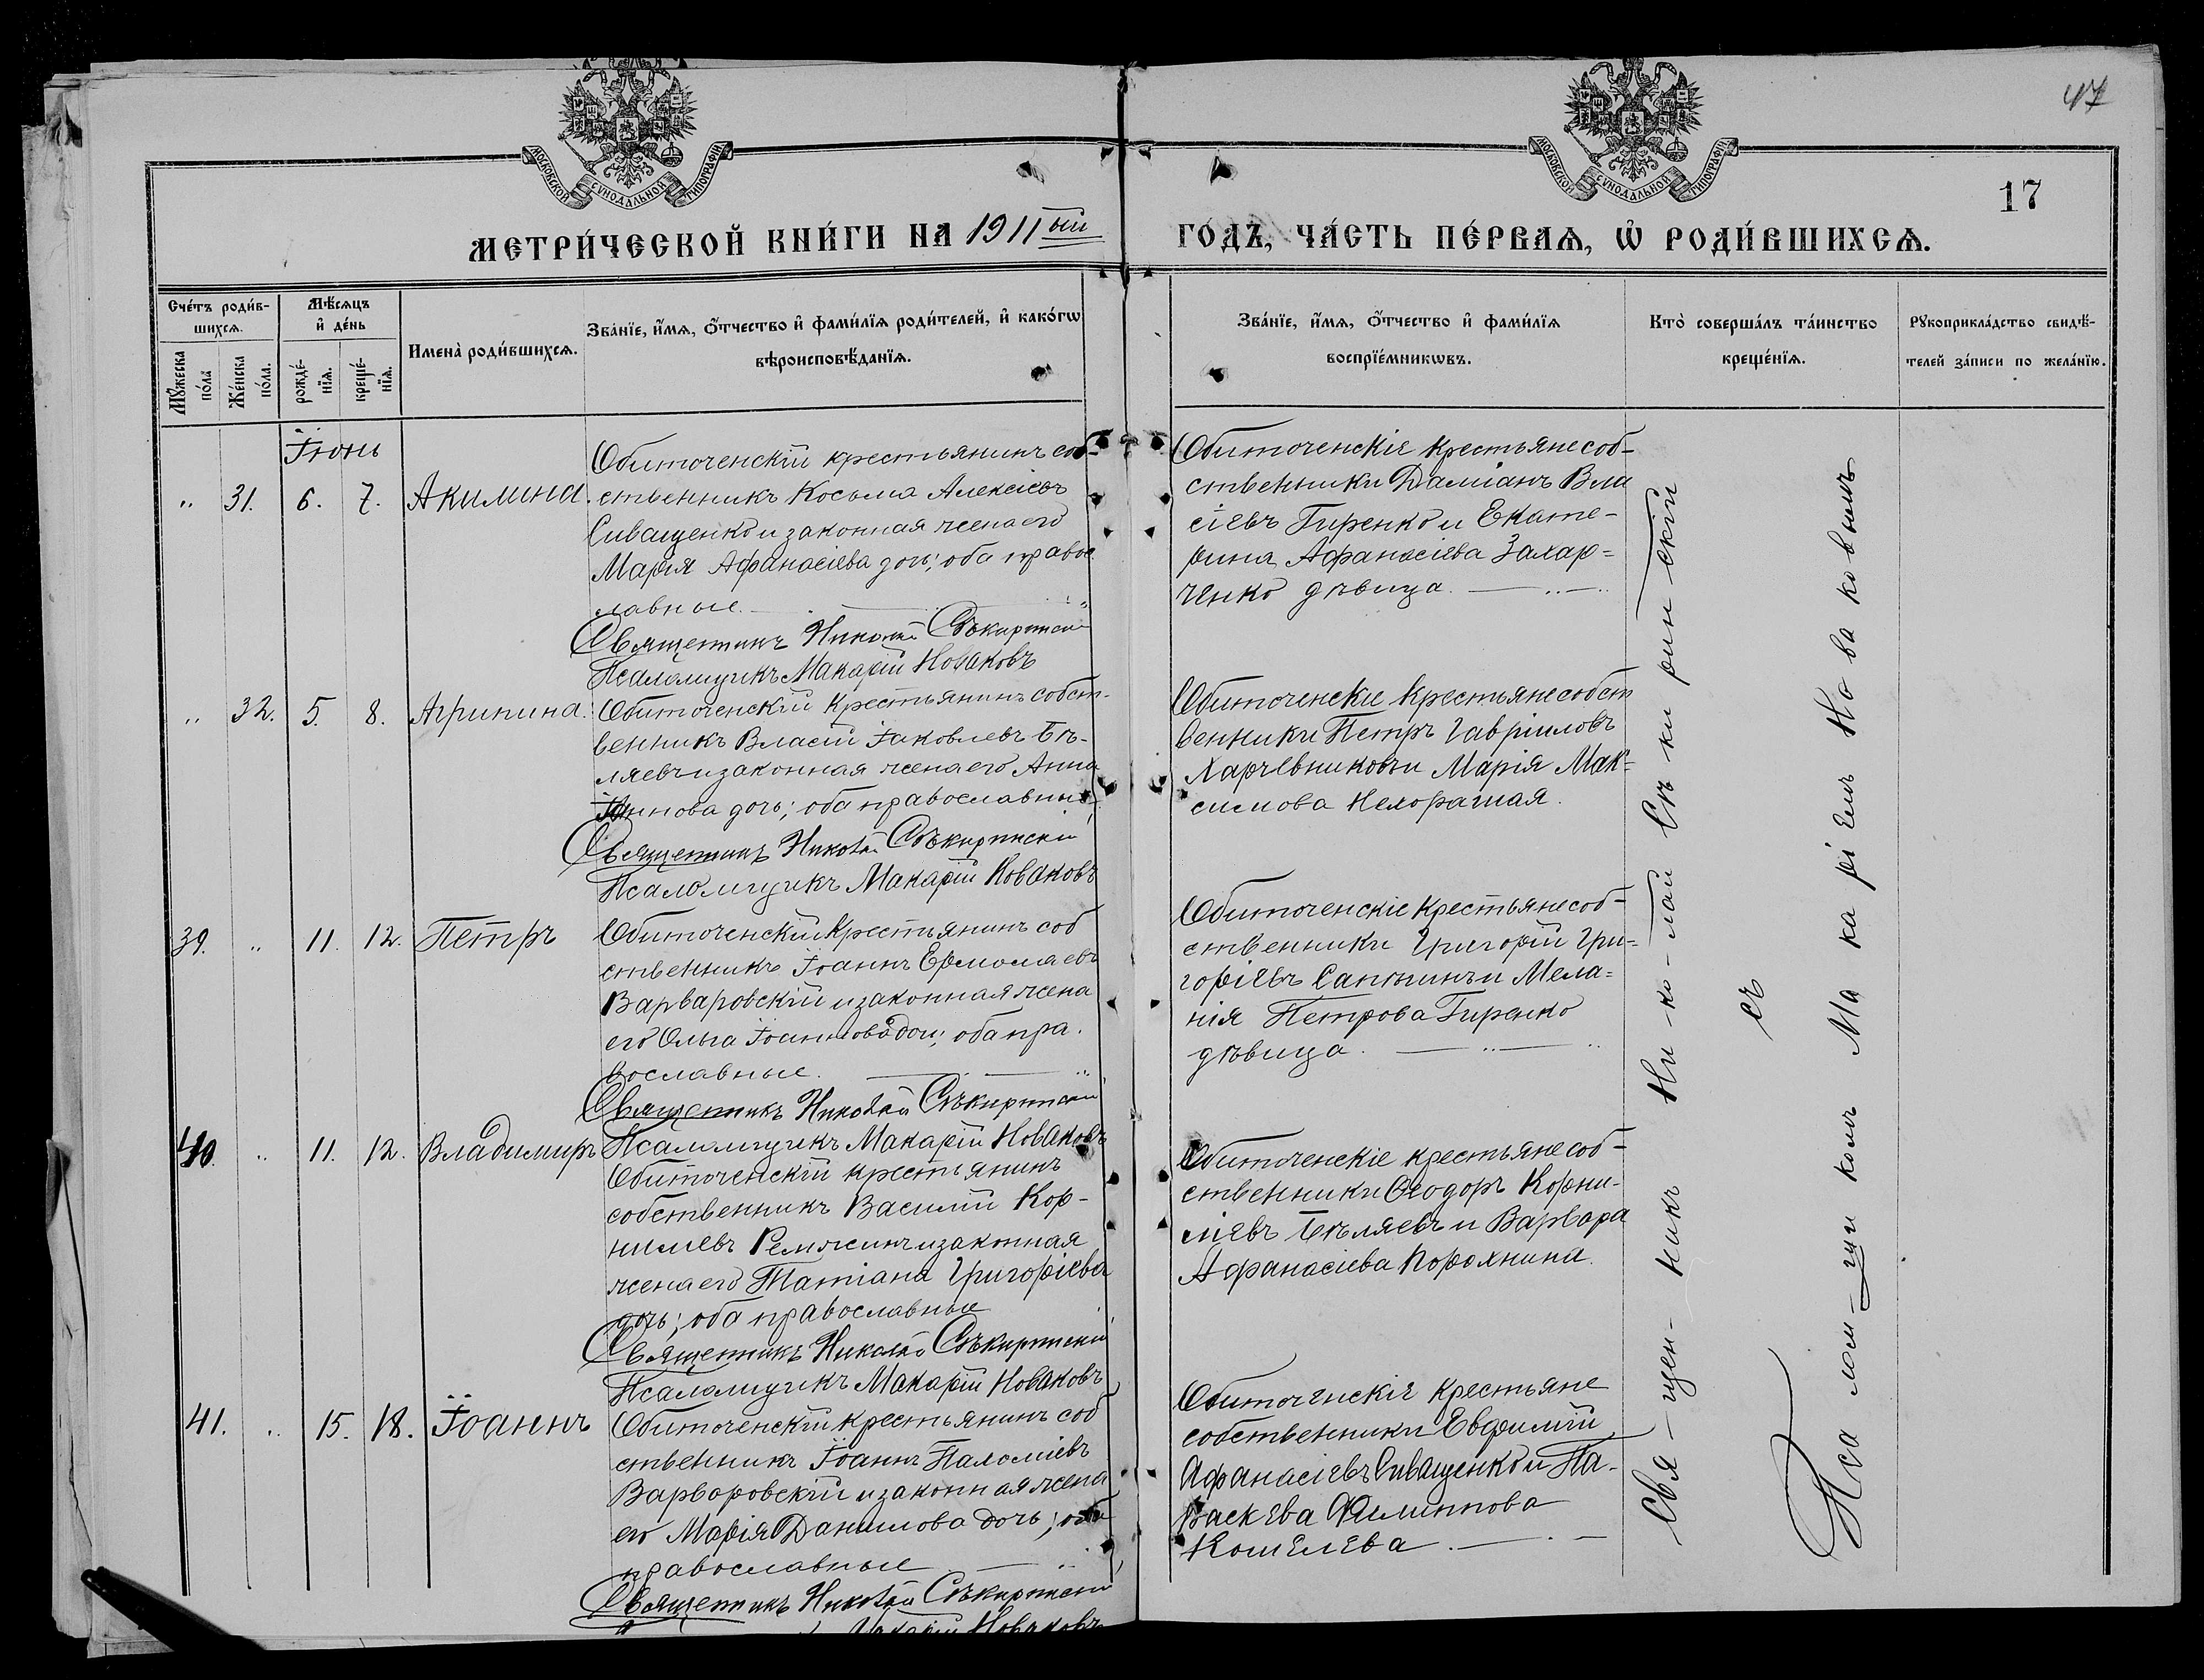 47
МОСКОВСКОЙ СѴНОДАЛЬНОЙ ТИПОГРАФІИ
МОСКОВСКОЙ СѴНОДАЛЬНОЙ ТИПОГРАФІИ
17
МЕТРИ́ЧЕСКОЙ КНИ́ГИ НА 1911ый ГО́ДЪ, ЧА́СТЬ ПЕ́РВАѦ, Ѡ҆ РОДИ́ВШИХСѦ.
Сче́тъ роди́в-
шихсѧ.
Мꙋ́жеска
по́ла
Же́нска
по́ла.
Мѣ́сѧцъ
и҆ де́нь
рожде́-
нїѧ.
креще́-
нїѧ.
Имена̀ роди́вшихсѧ.
Зва́нїе, и҆́мѧ, ѻ҆́тчество и҆ фами́лїѧ роди́телей, и҆ како́гѡ
вѣроисповѣ́данїѧ.
Зва́нїе, и҆́мѧ, ѻ҆́тчество и҆ фами́лїѧ
воспрїе́мникѡвъ.
Кто̀ соверша́лъ та́инство
креще́нїѧ.
Рꙋкоприкла́дство свидѣ́-
телей за́писи по жела́нїю.
Іюнь
" 31. 6. 7. Акилина.
Обиточенскій крестьянинъ соб-
ственникъ Косьма Алексіевъ
Сиващенко и законная жена его
Марія Афанасіева дочь; оба правос
лавные.
Священникъ Николай Сѣкиринскій
Псаломщикъ Макарій Новаковъ
Обиточенскіе крестьяне соб-
ственники Даміанъ Вла
сіевъ Гиренко и Екате-
рина Афанасіева Захар=
ченко дѣвица.
" 32. 5. 8. Агрипина.
Обиточенскій крестьянинъ собст-
венникъ Власій Іаковлевъ Бѣ-
ляевъ и законная жена его Анна
Іоаннова дочь; оба православные
Священникъ Николай Сѣкиринскій
Псаломщикъ Макарій Новаковъ
Обиточенскіе крестьяне собст
венники Петръ Гавріиловъ
Харчевниковъ и Марія Мак=
симова
39. " 11. 12. Петръ
Обиточенскій крестьянинъ соб
ственникъ Іоаннъ Ермолаевъ
Варваровскій и законная жена
его Ольга Іоаннова дочь; оба пра.
вославные.
Священникъ Николай Сѣкиринскій
Псаломщикъ Макарій Новаковъ
Обиточенскіе крестьяне соб-
ственники Григорій Гри=
горіевъ и Мела=
нія Петрова Гиренко
дѣвица.
40. " 11. 12. Владимиръ
Обиточенскій крестьянинъ
собственникъ Василій Кор-
нилиевъ и законная
жена его Татіана Григоріева
дочь; оба православные
Священникъ Николай Сѣкиринскій
Псаломщикъ Макарій Новаковъ
Обиточенскіе крестьяне соб-
ственники Ѳеодоръ Корни-
ліевъ Бѣляевъ и Варвара
Афанасіева Порохнина.
41. " 15. 18. Іоаннъ
Обиточенскій крестьянинъ соб
ственникъ Іоаннъ
Варворовскій и законная жена
его Марія Данилова дочь; оба
православные
Священникъ Николай Сѣкиринскій
Макарій Новаковъ
Обиточенскіе крестьяне
собственники Евфимій
Афанасіевъ Сиващенко и Па-
раскева Филиппова
Кошелева.
Свя-щен-никъ Ни-ко-лай Сѣ ки рин скій
съ
Псалом-щи комъ Ма ка рі емъ Но ва ко вымъ